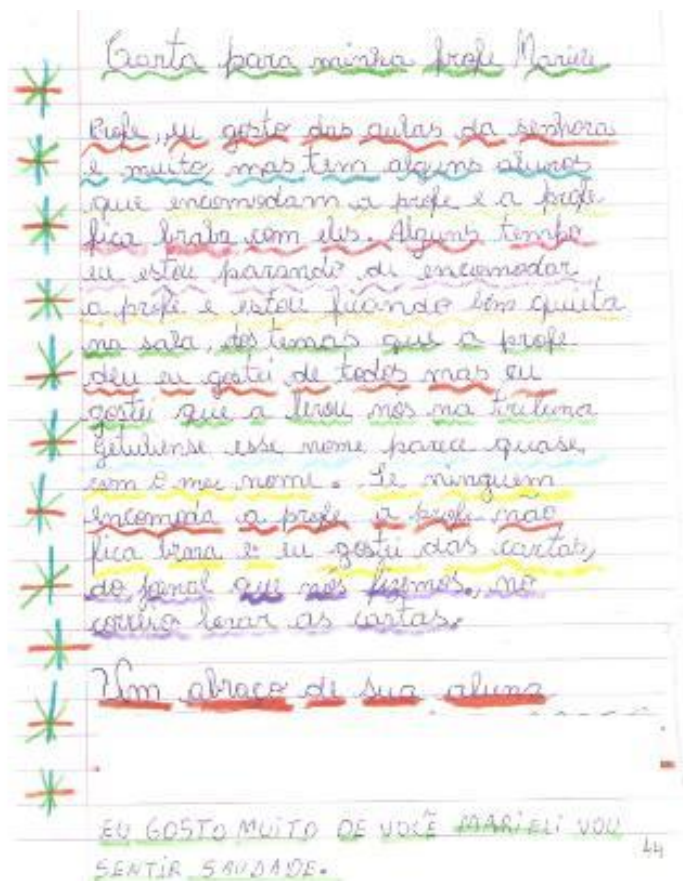 Carta para minha profe Marieli
Profe, eu gosto das aulas da senhora
e muito, mas tem alguns alunos
que encomodam a profe e a profe
fica braba com eles. Alguns tempo
eu estou parando di encomodar
a profe e estou ficando bem quieta
na sala, dos temas que a profe
deu eu gostei de todos mas eu
gostei que a levou nós na tribuna
getuliense esse nome parece quase
com o meu nome. Se ninguém
encomoda a profe a profe não
fica brava e eu gostei das cartas,
do jornal que nós fizemos, no
correio levar as cartas.
Um abraço de sua aluna
EU GOSTO MUITO DE VOCÊ MARIELI VOU
SENTIR SAUDADE.
44